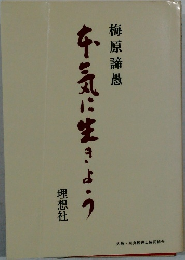 梅原諦愚
本気に生きよう
理想社